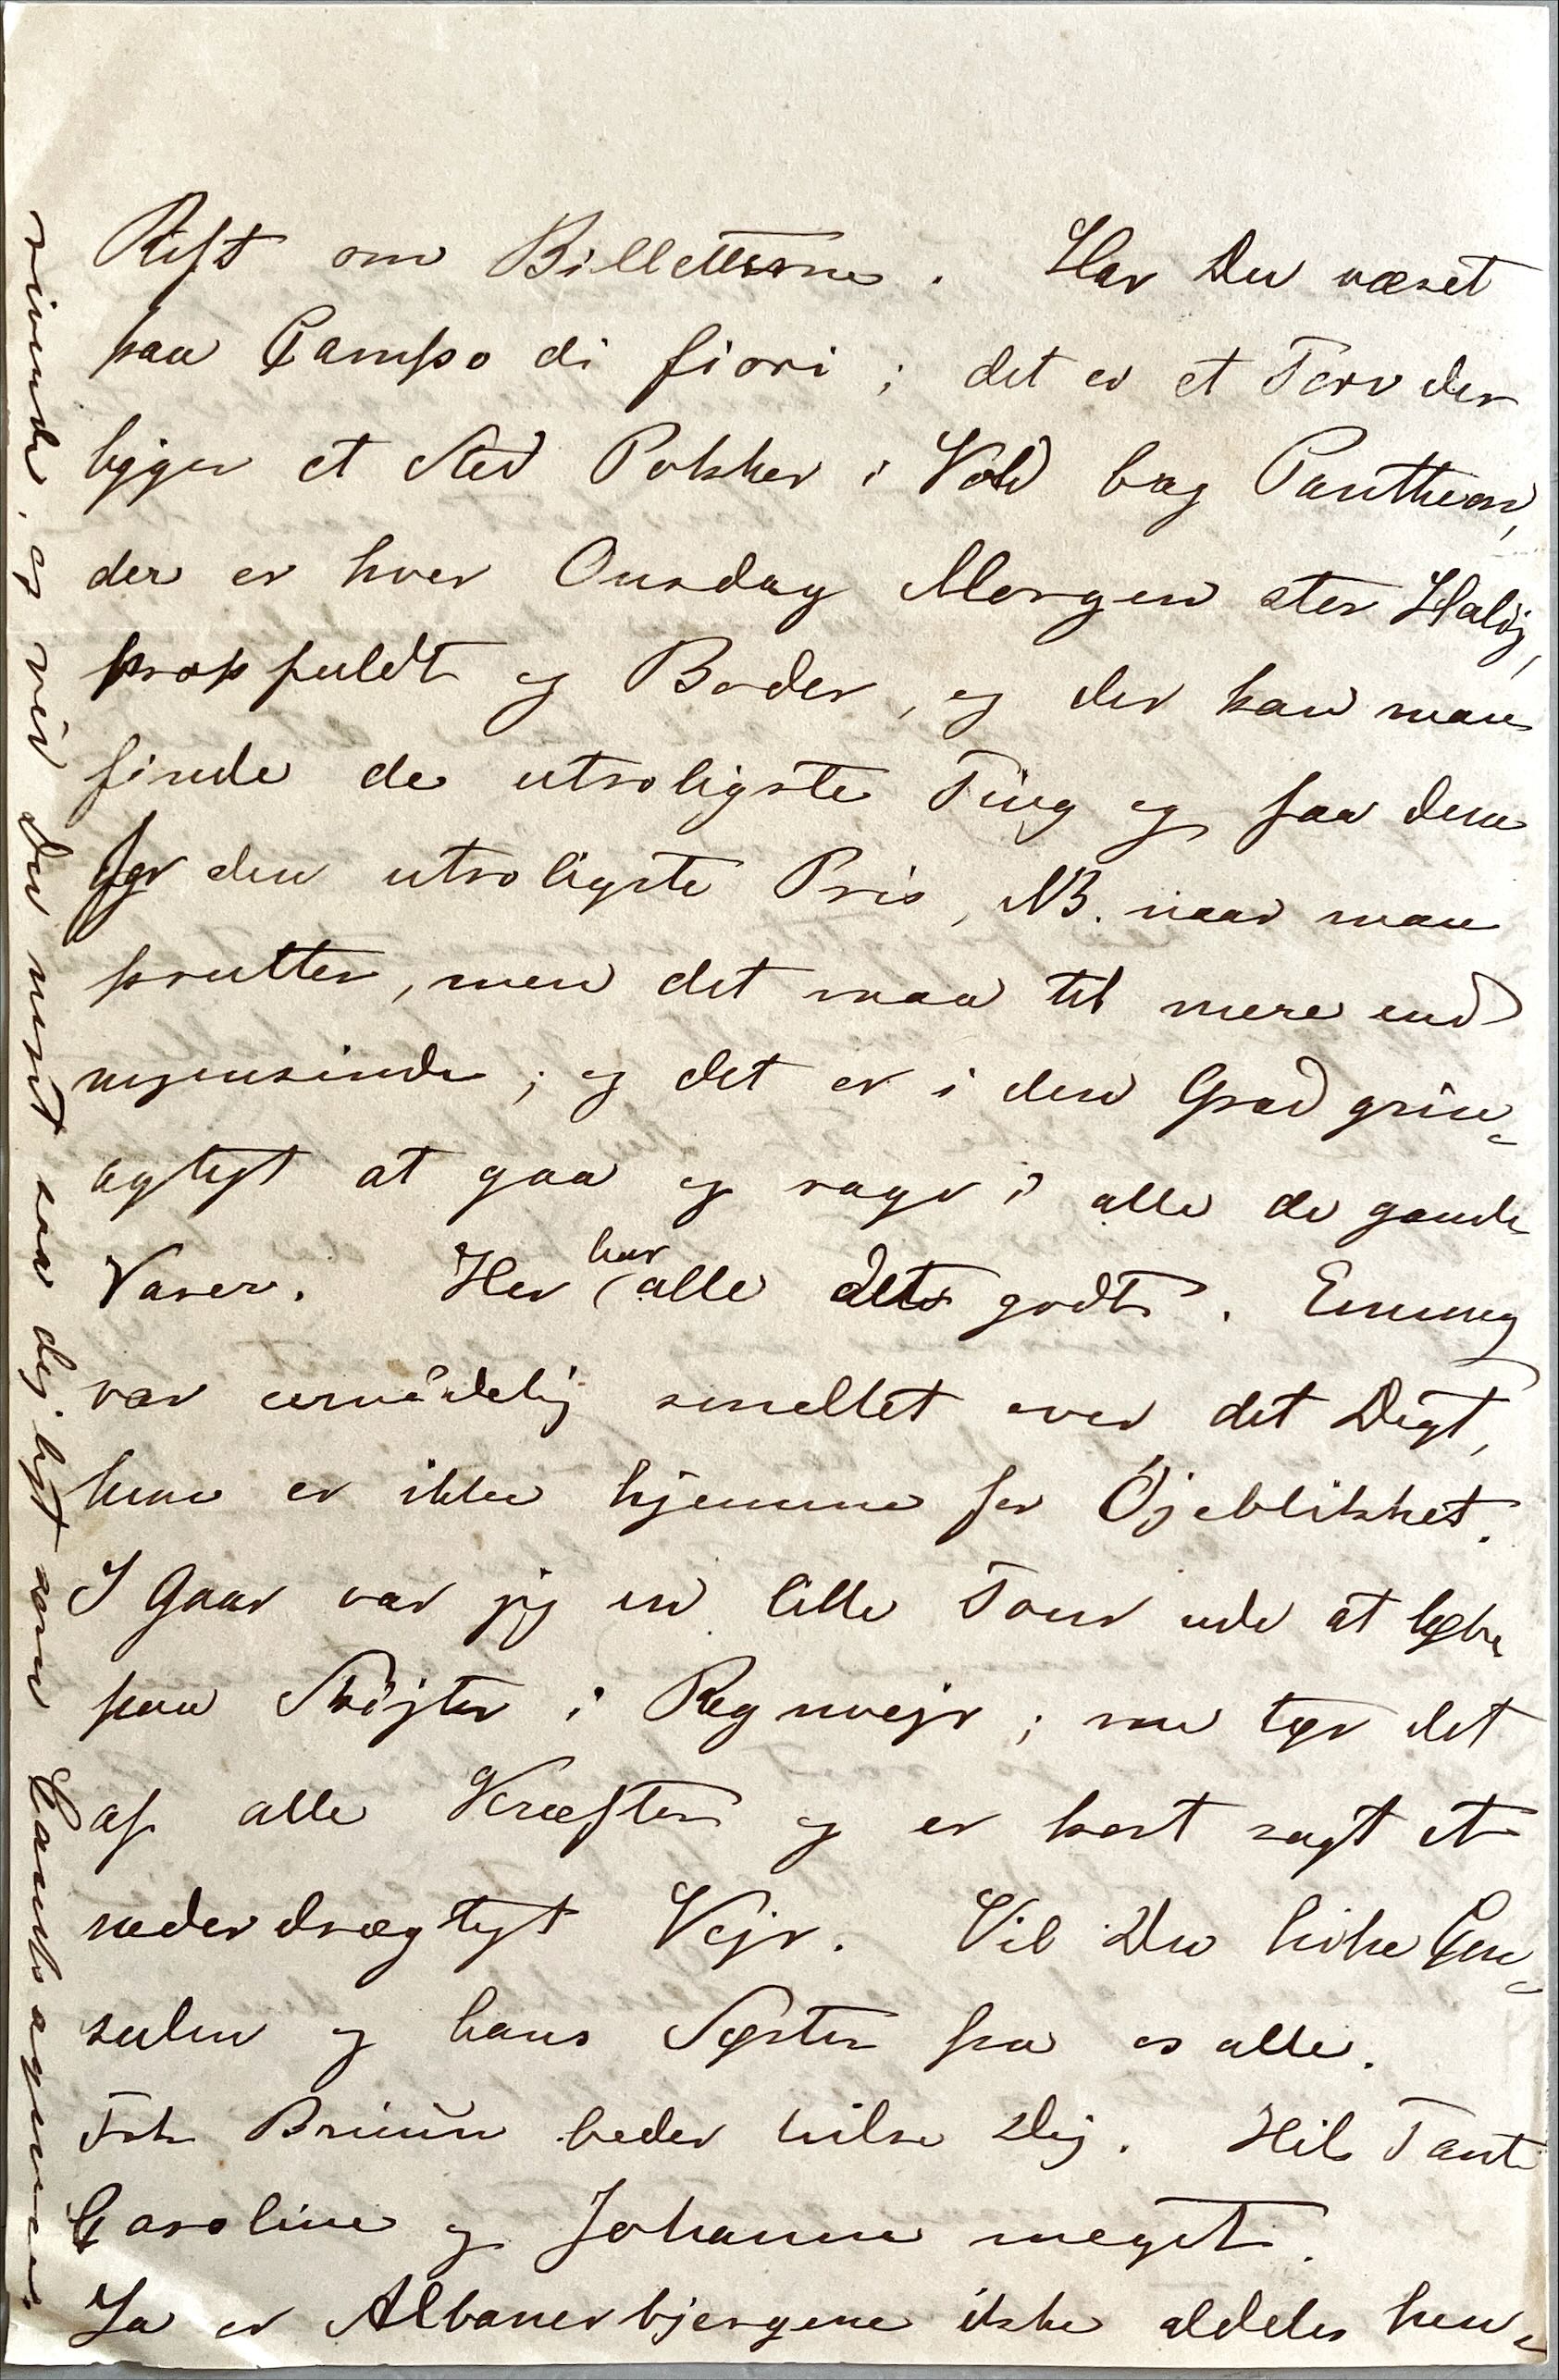 Rift om Billetterne. Har Du været
paa Campo di fiori; det er et Torv der
ligger et Sted Pokker i Vold bag Pantheon,
der er hver Onsdag Morgen stor Halløj,
propfuldt og Boder, og der kan man
finde de utroligste Ting og faa dem
for den utroligste Pris, NB. naar man
prutter, men det maa til mere end
nogensinde; og det er i den Grad grin=
agtigt at gaa og rage i alle de gamle
Varer. Her har alle det godt. Emmy
var umådelig smeltet over det Digt,
hun er ikke hjemme for Øjeblikket.
I Gaar var jeg en lille Tour ude at løbe
paa Skøjter i Regnvejr; nu tør det
af alle Kræfter og er kort sagt et
nederdrægtigt Vejr. Vil Du hilse Con=
sulen og hans Søster fra os alle.
Frk Bruun beder hilse Dig. Hils Tante
Caroline og Johanne meget.
Ja er Albanerbjergene ikke aldeles hen=
rivende, og ved Du noget saa dejligt som Campagnen.